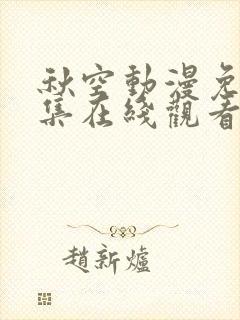 秋空動漫免
集在綫觀看
趙新爐